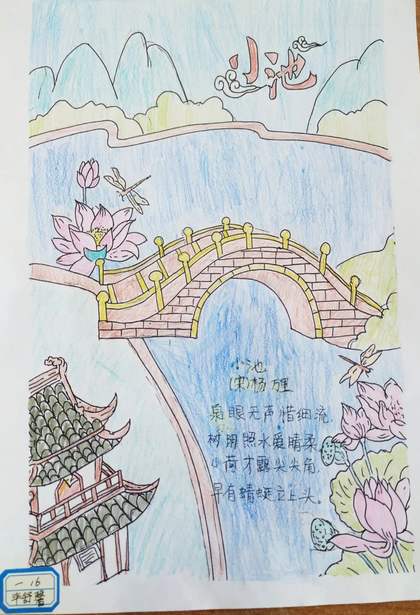 小池
小池
(宋)杨万里
泉眼无声惜细流,
树阴照水爱晴柔。
小荷才露尖尖角,
早有蜻蜓立上头。
一.16
李舒馨